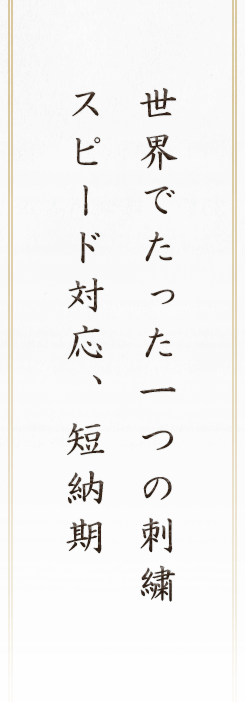 世界でたった一つの刺繍
スピード対応、短納期